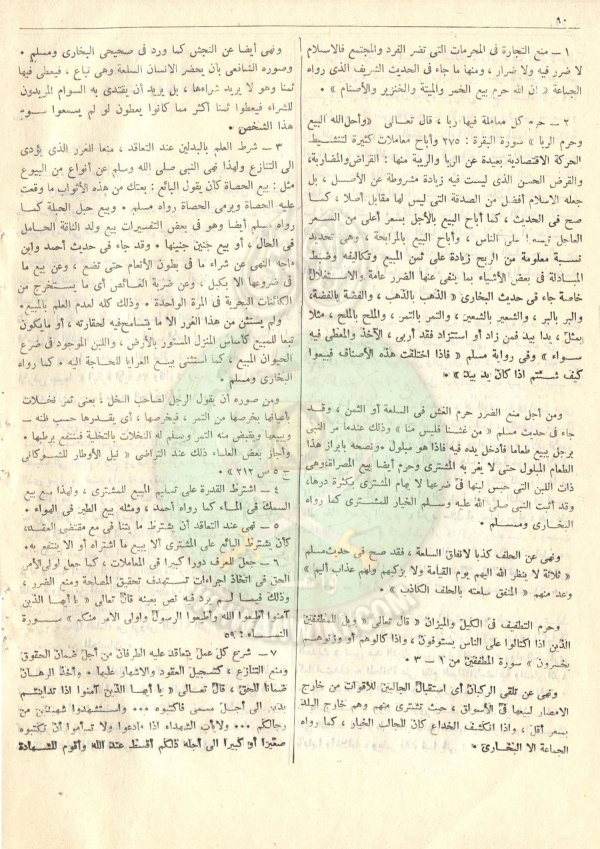 ٩٠
١ — منع التجارة فى المحرمات التى تضر الفرد والمجتمع فالاسلام
لا ضرر فيه ولا ضرار ، ومنها ما جاء فى الحديث الشريف الذى رواه
الجماعة « ان الله حرم بيع الخمر والميتة والخنزير والأصنام » .
٢ — حرم كل معاملة فيها ربا ، قال تعالى «وأحل الله البيع
وحرم الربا » سورة البقرة : ٢٧٥ وأباح معاملات كثيرة لتنشيط
الحركة الاقتصادية بعيدة عن الربا والريبة منها : القراض والمضاربة،
والقرض الحسن الذى ليست فيه زيادة مشروطة عن الأصل ، بل
جعله الاسلام أفضل من الصدقة التى ليس لها مقابل أصلا ، كما
صح فى الحديث ، كما أباح البيع بالأجل بسعر أعلى من السعر
العاجل تيسيرا على الناس ، وأباح البيع بالمرابحة ، وهى تحديد
نسبة معلومة من الربح زيادة على ثمن المبيع وتكاليفه وضبط
المبادلة فى بعض الأشياء بما ينفى عنها الضرر عامة والاستغلال
خاصة جاء فى حديث البخارى « الذهب بالذهب ، والفضة بالفضة،
والبر بالبر ، والشعير بالشعير ، والتمر بالتمر ، والملح بالملح ، مثلا
بمثل ، يدا بيد فمن زاد أو استزاد فقد أربى ، الآخذ والمعطى فيه
سواء » وفى رواية مسلم « فاذا اختلفت هذه الأصناف فبيعوا
كيف شئتم اذا كان يد بيد » .
ومن أجل منع الضرر حرم الغش فى السلعة أو الثمن ، وقد
جاء فى حديث مسلم « من غشنا فليس منا » وذلك عندما مر النبى
برجل يبيع طعاما فأدخل يده فيه فاذا هو مبلول . ونصحه بابراز هذا
الطعام المبلول حتى لا يغر به المشترى وحرم أيضا بيع المصراة وهى
ذات اللبن التى حبس لبنها فى ضرعها لا يهام المشترى بكثرة درها،
وقد أثبت النبى صلى الله عليه وسلم الخيار للمشترى كما رواه
البخارى ومسلم .
ونهى عن الحلف كذبا لانفاق السلعة ، فقد صح فى حديث مسلم
« ثلاثة لا ينظر الله اليهم يوم القيامة ولا يزكيهم ولهم عذاب أليم »
وعد منهم « المنفق سلعته بالحلف الكاذب » .
وحرم التطفيف فى الكيل والميزان « قال تعالى « ويل للمطففين
الذين اذا اكتالوا على الناس يستوفون ، واذا كالوهم أو وزنوهم
يخسرون » سورة المطففين من ١ — ٣ .
ونهى عن تلقى الركبان أى استقبال الجالبين للأقوات من خارج
الامصار لبيعها فى الأسواق ، حيث تشترى منهم وهم خارج البلد
بسعر أقل ، واذا انكشف الخداع كان للجالب الخيار ، كما رواه
الجماعة الا البخارى .
ونهى أيضا عن النجش كما ورد فى صحيحى البخارى ومسلم .
وصوره الشافعى بأن يحضر الانسان السلعة وهى تباع ، فيعطى فيها
ثمنا وهو لا يريد شراءها ، بل يريد أن يقتدى به السوام المريدون
للشراء فيعطوا ثمنا أكثر مما كانوا يعطون لو لم يسمعوا سوم
هذا الشخص .
٣ — شرط العلم بالبدلين عند التعاقد ، منعا للغرر الذى يؤدى
الى التنازع ولهذا نهى النبى صلى الله وسلم عن أنواع من البيوع
مثل : بيع الحصاة كأن يقول البائع : بعتك من هذه الأثواب ما وقعت
عليه الحصاة ويرمى الحصاة رواه مسلم . وبيع حبل الحبلة كما
رواه مسلم أيضا وهو فى بعض التفسيرات بيع ولد الناقة الحامل
فى الحال ، أو بيع جنين جنينها . وقد جاء فى حديث أحمد وابن
ماجه النهى عن شراء ما فى بطون الأنعام حتى تضع ، وعن بيع ما
فى ضروعها الا بكيل ، وعن ضربة الغائص أى ما يستخرج من
الكائنات البحرية فى المرة الواحدة . وذلك كله لعدم العلم بالمبيع.
ولم يستثن من هذا الغرر الا ما يتسامح فيه لحقارته ، أو ما يكون
تبعا للمبيع كأساس المنزل المستور بالأرض ، واللبن الموجود فى ضرع
الحيوان المبيع ، كما استثنى بيع العرايا للحاجة اليه . كما رواه
البخارى ومسلم .
ومن صوره أن يقول الرجل لصاحب النخل : بعنى ثمر نخلات
بأعيانها بخرصها من التمر ، فيخرصها ، أى يقدرها حسب ظنه —
ويبيعها ويقبض منه الثمر ويسلم له النخلات بالتخلية فينتفع برطبها .
وأجاز بعض العلماء ذلك عند التراضى « نيل الأوطار للشوكانى
ج ٥ ص ٢١٢ » .
٤ — اشترط القدرة على تسليم المبيع للمشترى ، ولهذا منع بيع
السمك فى الماء كما رواه أحمد ، ومثله بيع الطير فى الهواء .
٥ — نهى عند التعاقد أن يشترط ما يتنافى مع مقتضى العقد،
كأن يشترط البائع على المشترى ألا يبيع ما اشتراه أو الا ينتفع به.
٦ — جعل للعرف دورا كبيرا فى المعاملات ، كما جعل لولى الأمر
الحق فى اتخاذ اجراءات تستهدف تحقيق المصلحة ومنع الضرر ،
وذلك فيما لم يرد فيه نص بعينه قال تعالى « يا أيها الذين
آمنوا أطيعوا الله وأطيعوا الرسول واولى الأمر منكم » سورة
النساء : ٥٩
٧ — شرع كل عمل يتعاقد عليه الطرفان من أجل ضمان الحقوق
ومنع التنازع ، كتسجيل العقود والاشهار عليها . وأخذ الرهان
ضمانا للحق ، قال تعالى « يا أيها الذين آمنوا اذا تداينتم
بدين الى أجل مسمى فاكتبوه ... واستشهدوا شهيدين من
رجالكم ... ولا يأب الشهداء اذا ما دعوا ولا تسأموا أن تكتبوه
صغيرا أو كبيرا الى أجله ذلكم أقسط عند الله وأقوم للشهادة